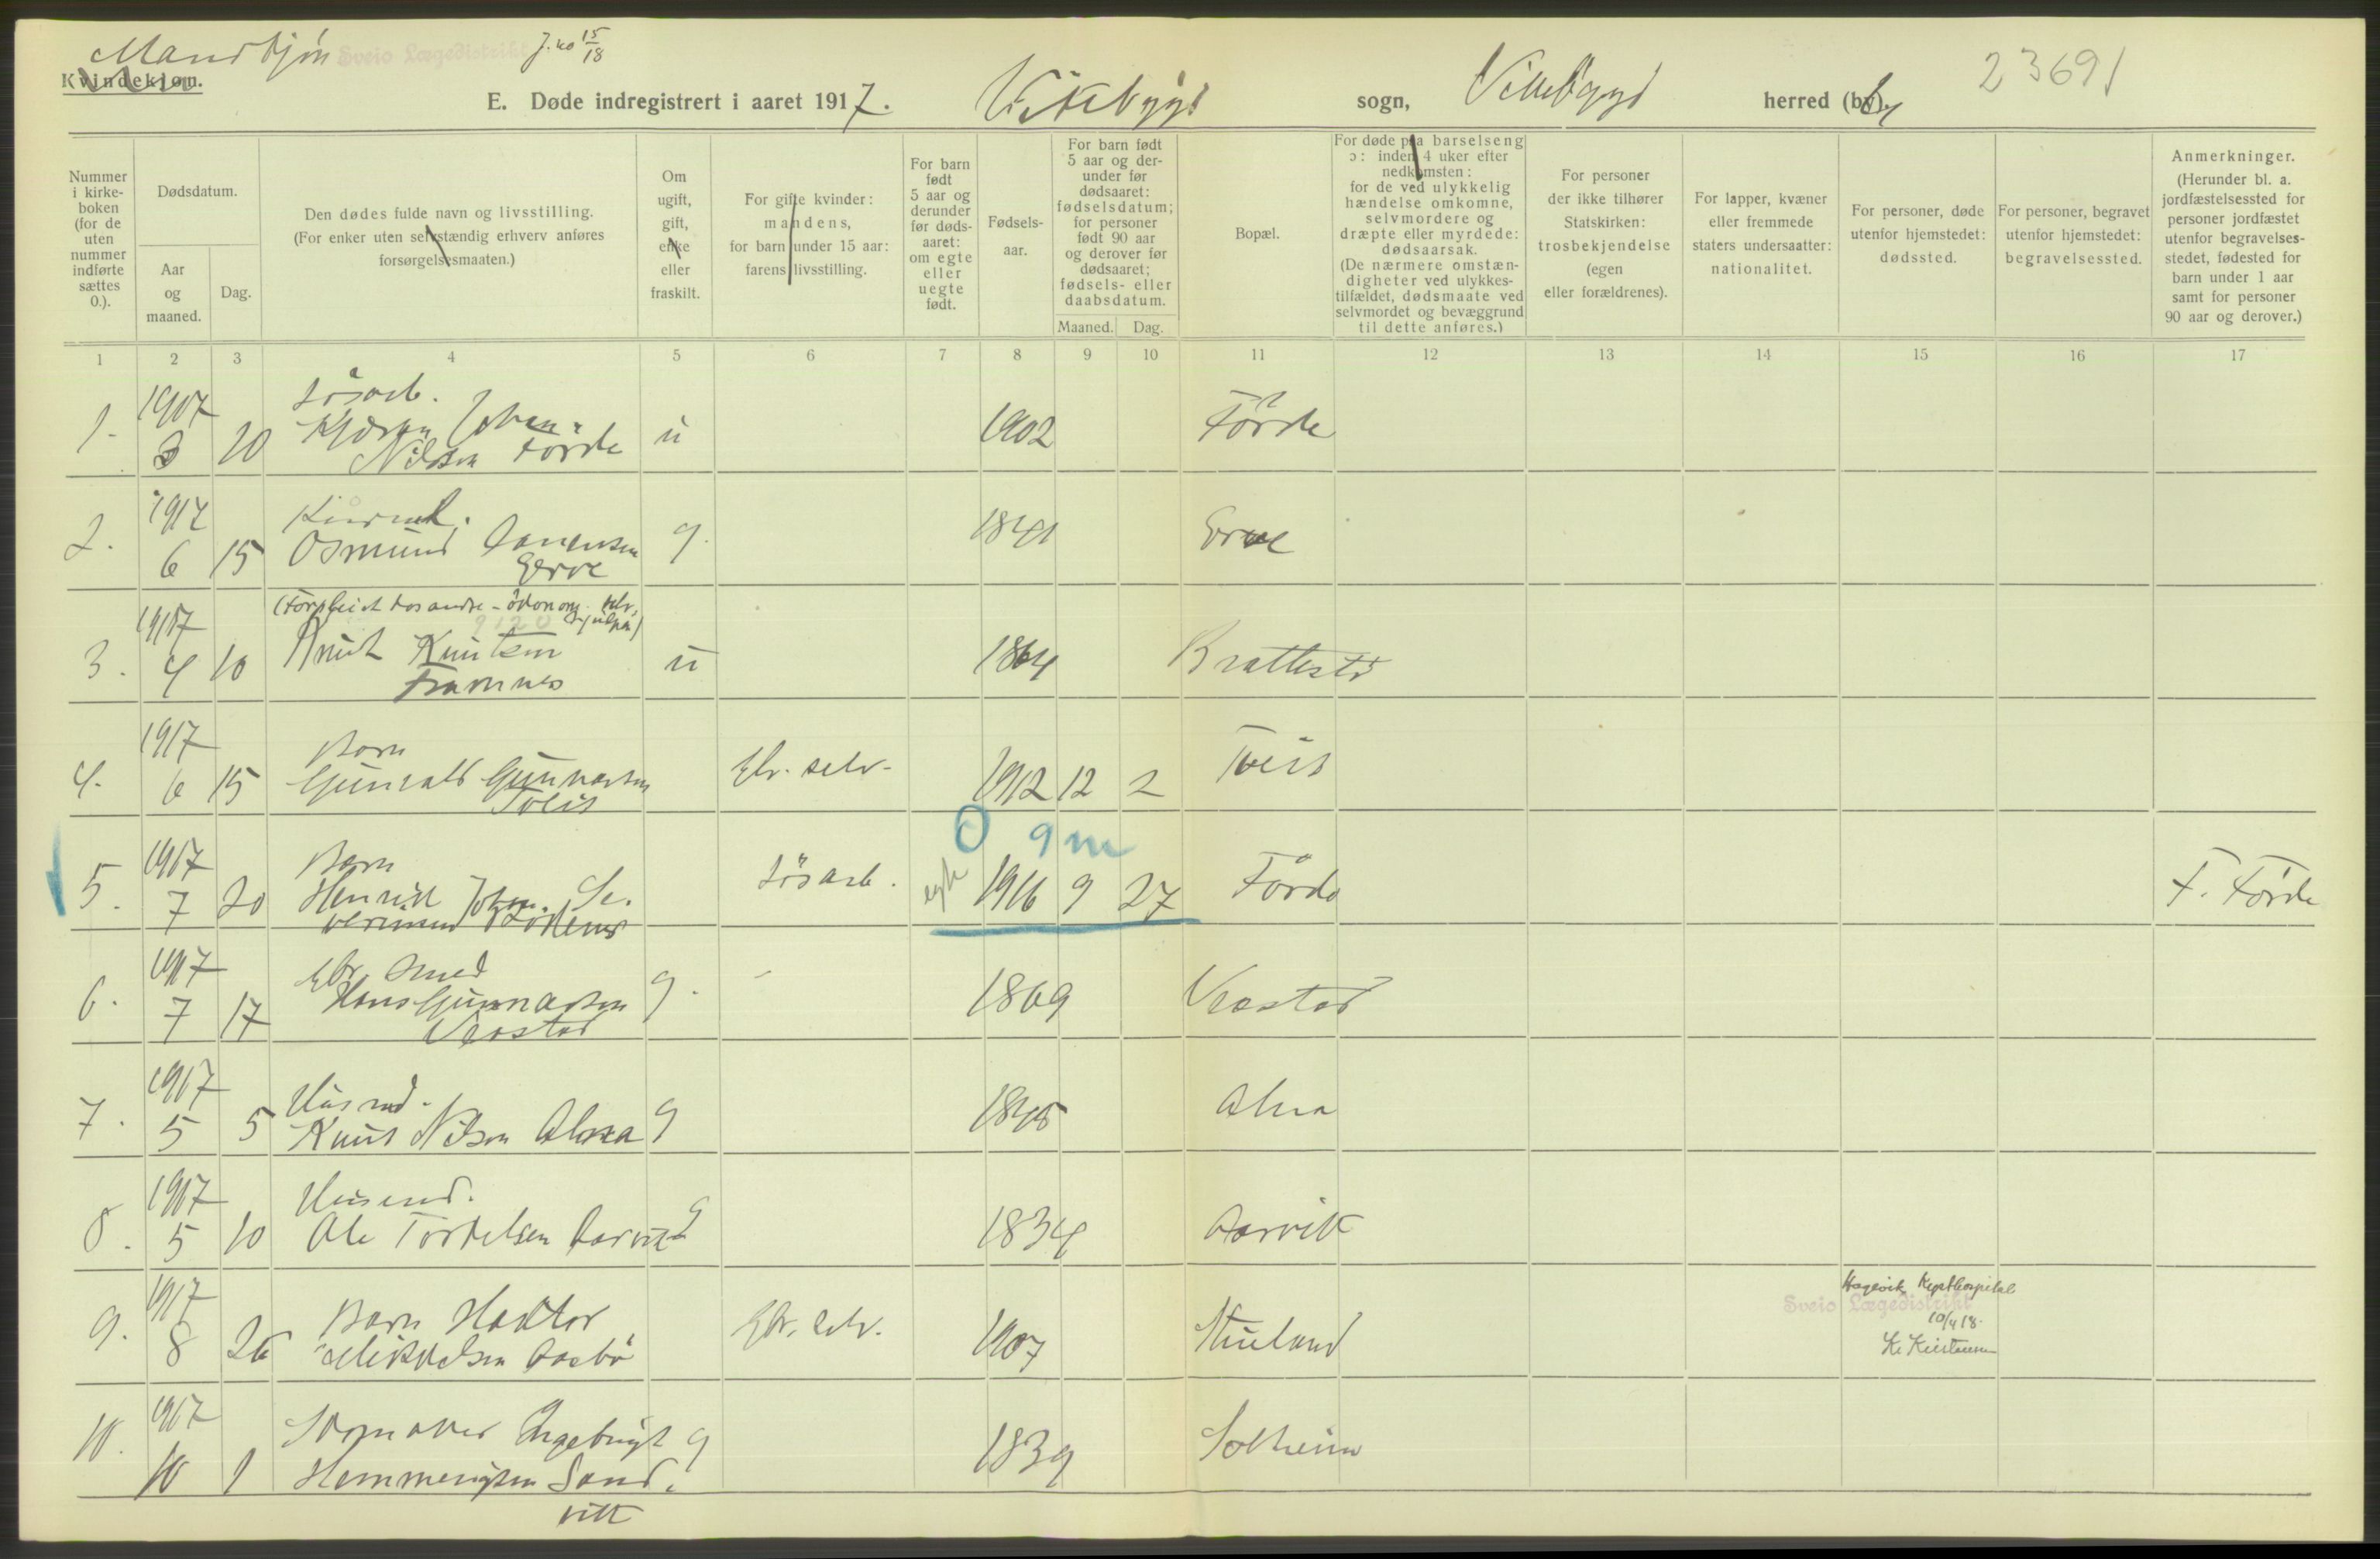 Mandkjøn Sveio Lægedistrikt J. no 15/18
Kvindekjøn.
E. Døde indregistrert i aaret 1917. Vikebygd sogn, Vikebygd herred (by). 23691
Nummer i kirkeboken (for de uten nummer indførte sættes 0.).
Dødsdatum.
Aar og maaned.
Dag.
Den dødes fulde navn og livsstilling.
(For enker uten selvstændig erhverv anføres forsørgelsesmaaten.)
Om ugift, gift, enke eller fraskilt.
For gifte kvinder: mandens, for barn under 15 aar: farens livsstilling.
For barn født 5 aar og derunder før dødsaaret: om egte eller uegte født.
Fødselsaar.
For barn født 5 aar og derunder før dødsaaret: fødselsdatum; for personer født 90 aar og derover før dødsaaret; fødsels- eller daabsdatum.
Maaned. Dag.
Bopæl.
For døde paa barselseng ɔ: inden 4 uker efter nedkomsten: for de ved ulykkelig hændelse omkomne, selvmordere og dræpte eller myrdede: dødsaarsak.
(De nærmere omstændigheter ved ulykkestilfældet, dødsmaate ved selvmordet og bevæggrund til dette anføres.)
For personer der ikke tilhører Statskirken: trosbekjendelse (egen eller forældrenes).
For lapper, kvæner eller fremmede staters undersaatter: nationalitet.
For personer, døde utenfor hjemstedet: dødssted.
For personer, begravet utenfor hjemstedet: begravelsessted.
Anmerkninger.
(Herunder bl. a. jordfæstelsessted for personer jordfæstet utenfor begravelsesstedet, fødested for barn under 1 aar samt for personer 90 aar og derover.)
1 2 3 4 5 6 7 8 9 10 11 12 13 14 15 16 17
1. 1917 3 20 Løsarb. Johan Nilsen Førde u 1902 Førde
2. 1917 6 15 Osmund g. 1841
3. 1917 4 10 Knut Knutsen Framnes u 1864 Brattestø
4. 1917 6 15 Barn Gunvald Gunnarsen Tveit Gbr. selv. 1912 12 2 Tveit
0 9 m
5. 1917 7 20 Barn Henrik Johan Se- Løsarb. egte 1916 9 27 Førde F. Førde
6. 1917 7 17 Gbr. Smed Hans Gunnarsen Veastad g. 1869 Veastad
7. 1917 5 5 Husmd. Knut Nilsen g 1845
8. 1917 5 10 Husmd. Ole Torkelsen Aarvik g 1834 Aarvik
9. 1917 8 26 Barn Haktor Mikkelsen Aasbø Gbr. selv. 1907 Stueland Hagevik Kysthospital
Sveio Lægedistrikt
10/4 18.
10. 1917 10 1 Ingebrigt Hemmingsen Sandvik g 1839 Solheim